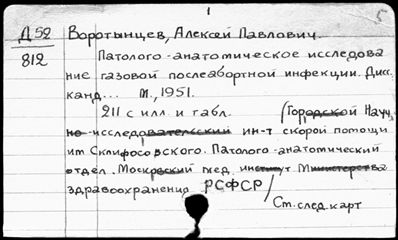 1
5
Д 52 Воротынцев, Алексей Павлович.
812
Патолого-анатомическое исследова
ние газовой послеабортной инфекции. Дисс.
канд... М., 1951.
211 с илл. и табл. (Городской Науч.
но-исследовательский ин-т скорой помощи
им Склифосовского. Патолого-анатомический
отдел. Московский мед. институт Министерства
здравоохранения РСФСР/
Ст. след. карт